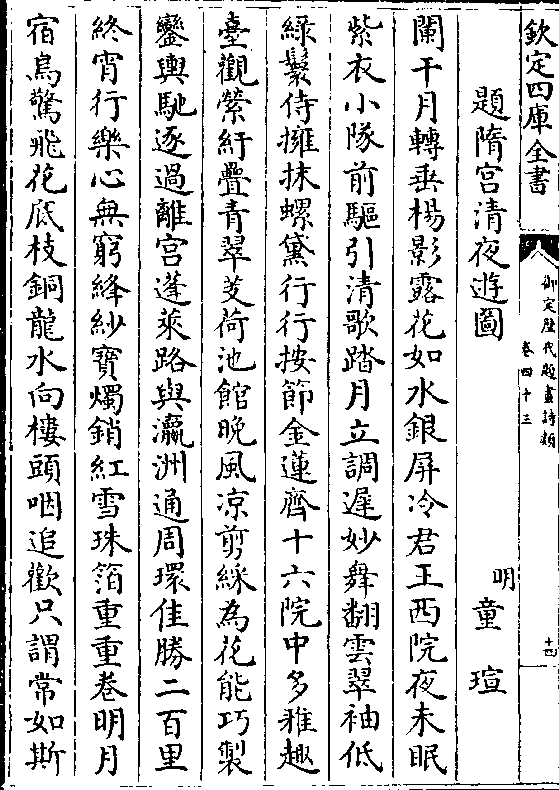 欽定四庫全書
御定歷代題畫詩類
卷四十三
十四
題隋宮清夜遊圖
明 童瑄
闌干月轉垂楊影露花如水銀屏冷君王西院夜未眠
紫衣小隊前驅引清歌踏月立調遲妙舞翻雲翠袖低
綠鬟侍擁抹螺黛行行按節金蓮齊十六院中多雅趣
臺觀縈紆疊青翠芰荷池館晚風凉剪綵為花能巧製
鑾輿馳逐過離宮蓬萊路與瀛洲通周環佳勝二百里
終宵行樂心無窮絳紗寶燭銷紅雪珠箔重重卷明月
宿鳥驚飛花底枝銅龍水向樓頭咽追歡只謂常如斯